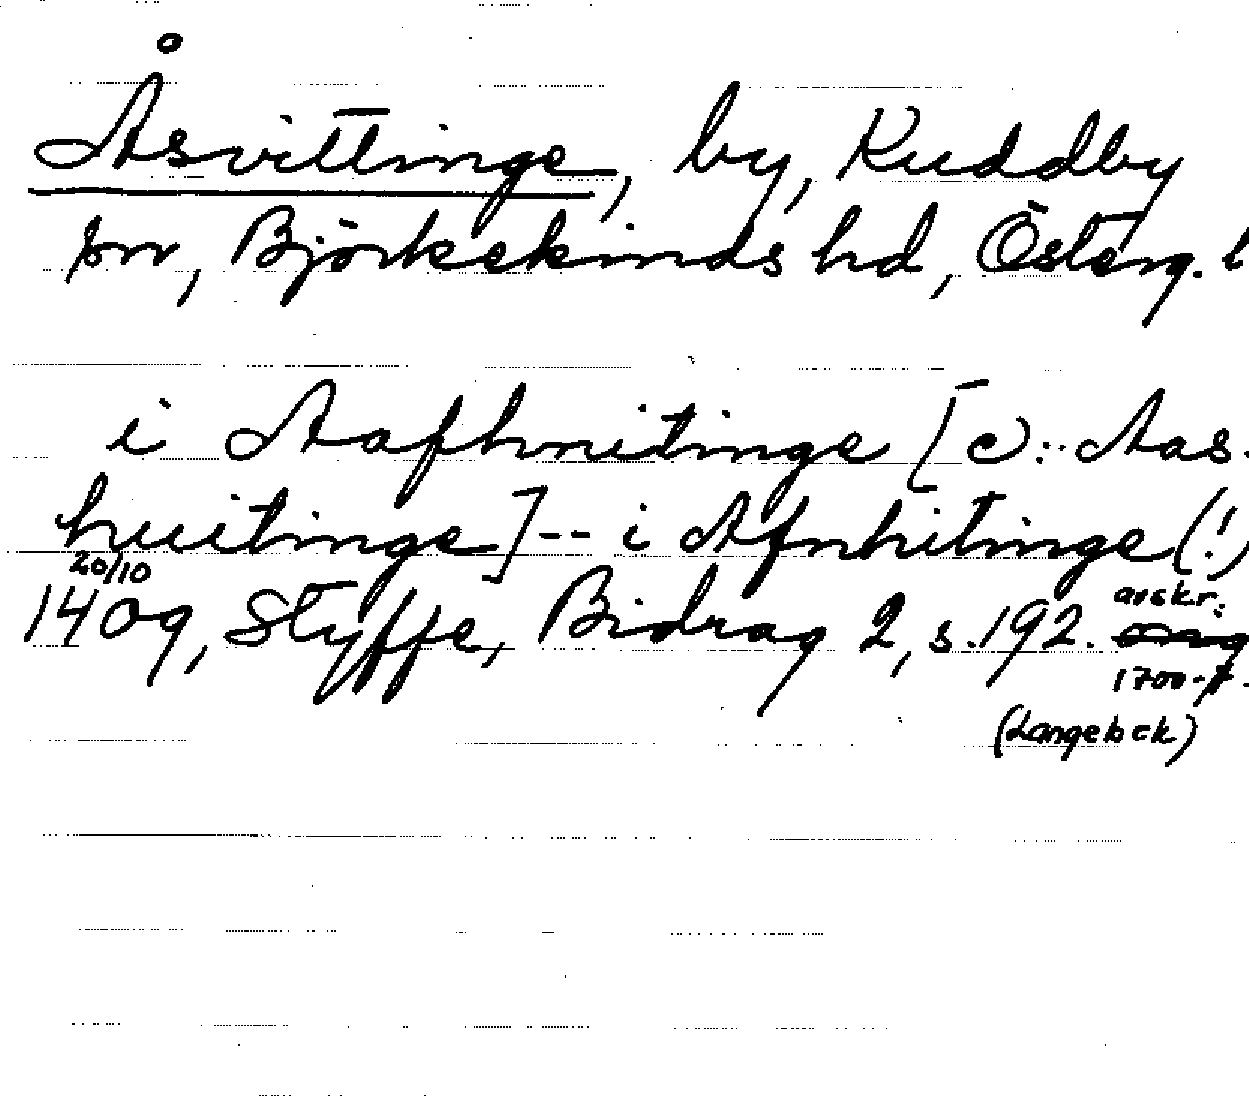 Åsvittinge, by, Kuddby
sn, Björkekinds hd, Österg. l
i Aafhnitinge [ɔ: Aas-
huitinge] -- i Afnhitinge (!)
20/10
1409, Styffe, Bidrag 2, s. 192. avskr.
1700-t.
(Langebek)